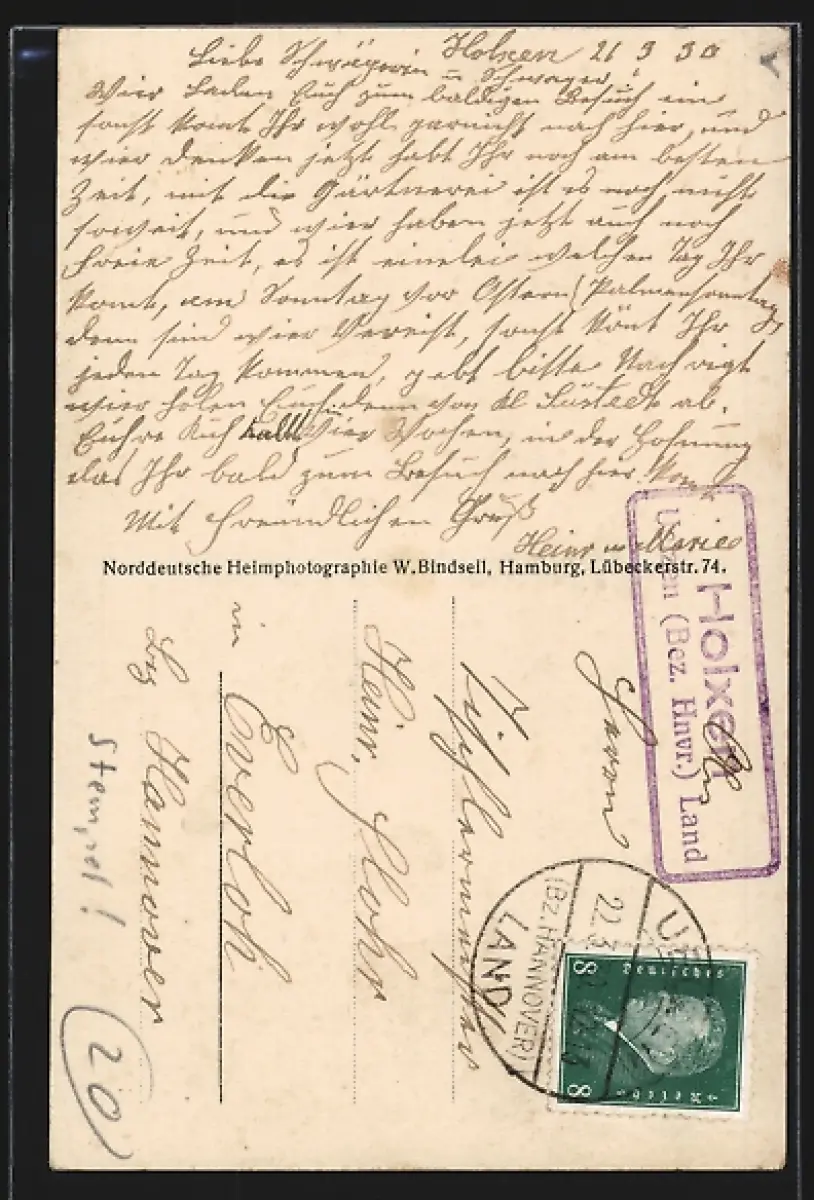 Holxen 21 3 30
Liebe Schwägerin u Schwager!
Wier Laden Euch zum baldigen Besuch ein
sonst komt Ihr wohl garnicht nach hier, und
wier denken jetzt habt Ihr noch am besten
Zeit, mit die Gärtnerei ist es noch nicht
soweit, und wier haben jetzt auch noch
freie Zeit, es ist einelei welchen Tag Ihr
komt, am Sonntag vor Ostern (Palmensonntag)
denn sind wier Vereist, sonst könt Ihr
jeden Tag kommen, gebt bitte Nachrigt
wier holen Euch denn von Kl Süstedt ab.
Euhre Kuh kalbt in Vier Wochen, in der Hofnung
das Ihr bald zum Besuch nach hier komt
Mit freundlichen Gruß
Heinr u Marie
Norddeutsche Heimphotographie W. Bindseil, Hamburg, Lübeckerstr. 74.
Holxen
Uelzen (Bez. Hnvr.) Land
An
Herrn
Tischlermeister
Heinr. Flohr
in Everloh
Bez Hannover
Stempel!
20
UELZEN
22.3.
(BZ. HANNOVER)
LAND
Deutsches
Reich
8
8